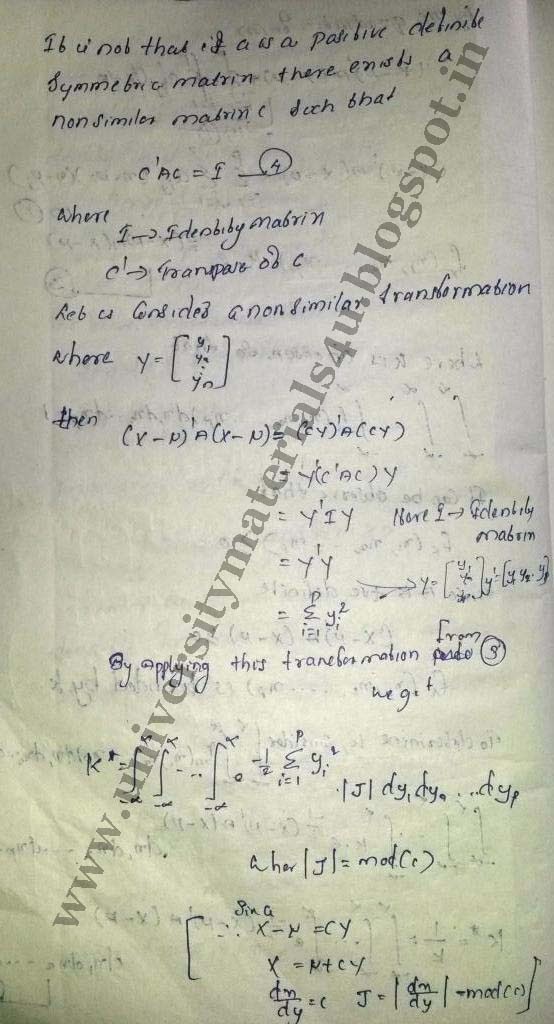 It is not that if a is a positive definite
Symmetric matrix there exists a
nonsimilar matrix c such that
C'AC = I — (4)
where
I → Identity matrix
C' → Transpose of c
Let us Consider a nonsimilar transformation
where Y = [y₁ y₂ ⋮ yₙ]
then
(X-μ)'A(X-μ) = (CY)'A(CY)
= Y'(C'AC)Y
= Y'IY Here I → Identity matrix
= Y'Y
→ Y = [y₁ y₂ ⋮ yₚ] y' = [y₁ y₂ .. yₚ]
= Σᵢ₌₁ᵖ yᵢ²
By applying this transformation from (3)
we get
K* = ∫_{-∞}^{∞} ∫_{-∞}^{∞} ... ∫_{-∞}^{∞} e^{-1/2 Σᵢ₌₁ᵖ yᵢ²} |J| dy₁ dy₂ ... dyₚ
where |J| = mod(c)
Since
∵ X-μ = CY
X = μ+CY
dx/dy = c J = |dx/dy| = mod(c)
www.universitymaterials4u.blogspot.in